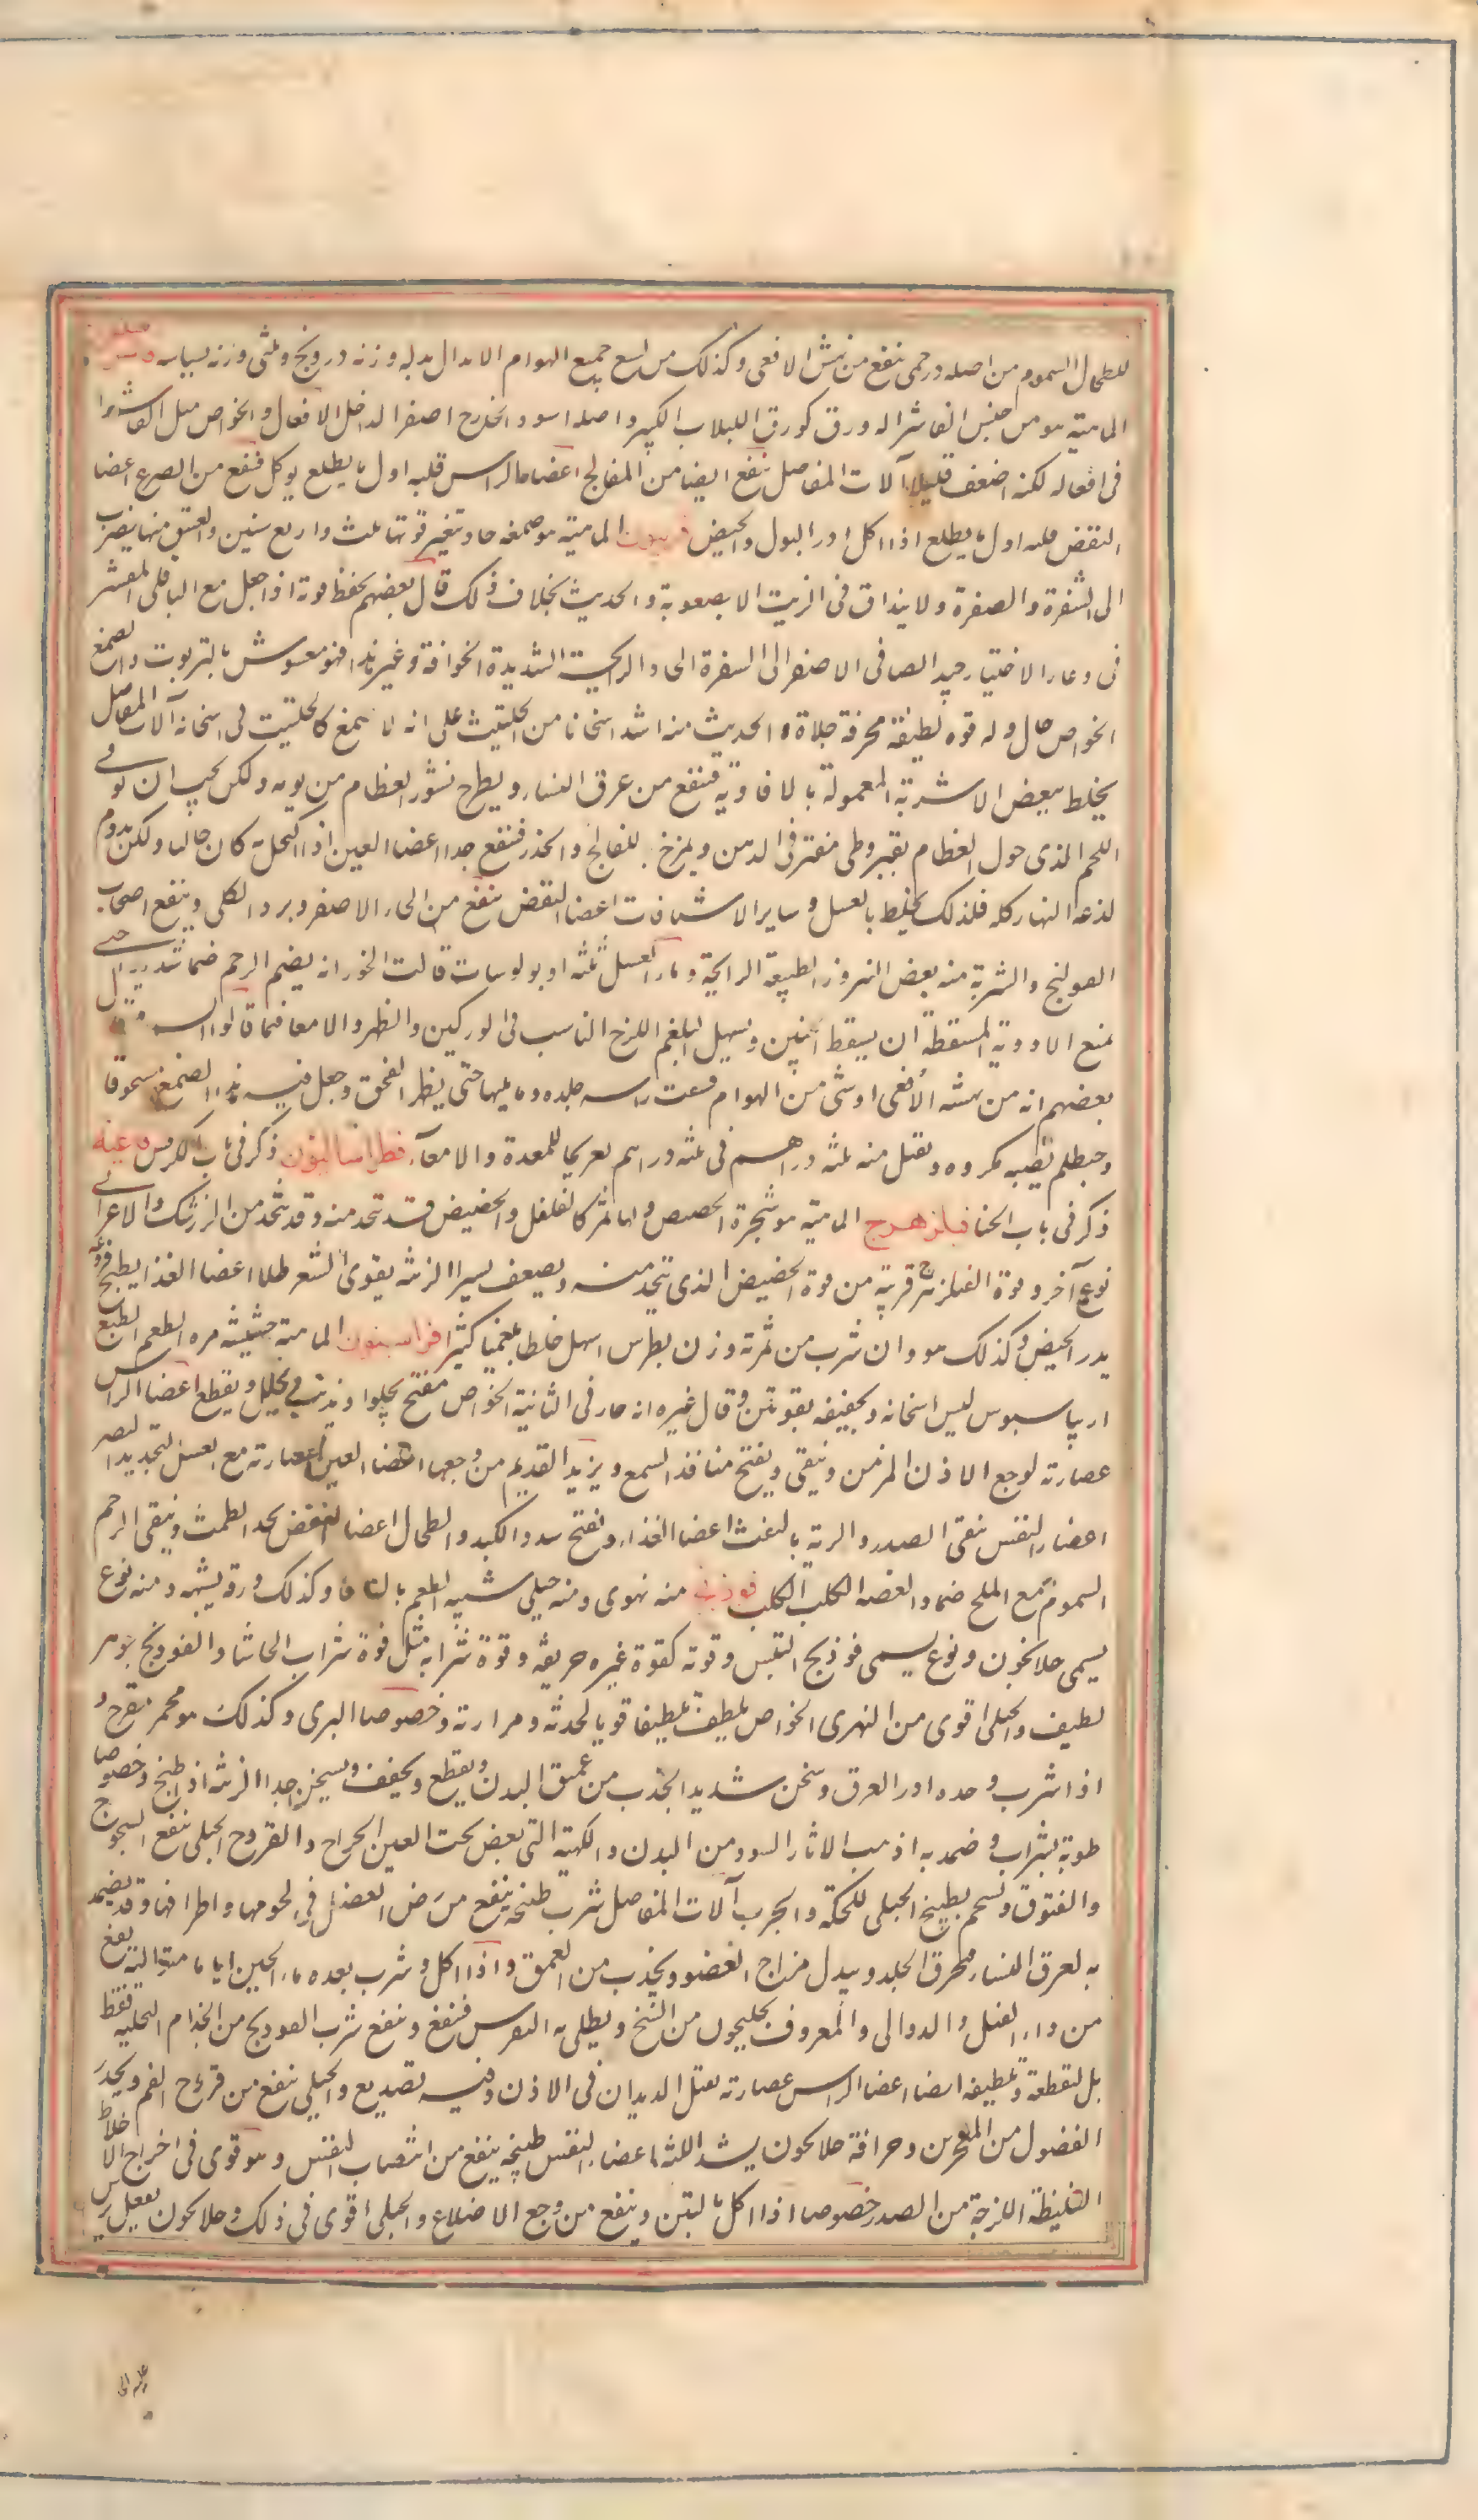 للطحال السموم من اصله درخمى ينفع من نهش الافعى وكذلك من لسع جميع الهوام الابدال بدله وزنه درونج وثلثى وزنه بسباسه
الماهيّه هو من جنس الفاشرا له ورق كورق اللبلاب الكبير واصله اسود الخارج اصفر الداخل الافعال والخواص مثل الفاشرا
فى افعاله لكنه اضعف قليلا آلات المفاصل ينفع ايضا من الفالج اعضا الراس قلبه اول ما يطلع يوكل فينفع من الصرع اعضا
النفض قلبه اول ما يطلع اذا اكل ادر البول والحيض فربيون الماهية هو صمغه حاد تتغير قوتها بثلث واربع سنين والعتيق منها يضرب
الى الشقرة والصفرة ولا ينداق فى الزيت الا بصعوبة والحديث بخلاف ذلك قال بعضهم يحفظ قوته اذا جعل مع الباقلى المقشر
فى وعاء الاختيار جيده الصافى الاصفر الى الشقرة الحاد الرايحة الشديدة الحرافة وغير هذا فهو مغشوش بالتربوت والصمغ
الخواص حال وله قوه لطيفة محرقة جلاة و الحديث منه اشد اسخانا من الحلتيت على انه لا صمغ كالحلتيت فى اسخانه آلات المفاصل
يخلط ببعض الاشربة المعمولة بالافاويه فتنفع من عرق النسا، ويطرح قشور العظام من يومه ولكن يجب ان توقى
اللحم الذى حول العظام بقيروطى مفتر فى الدهن ويمرخ للفالج والخدر فينفع جدا اعضا العين اذا اكتحل به كان جاليا ولكن يدوم
لذعه النهار كله فلذلك يخلط بالعسل وساير الاشيافات اعضا النفض ينفع من الماء الاصفر وبرد الكلى وينفع اصحاب
القولنج والشربة منه بعض البزور الطيبة الرايحة وماء العسل ثلثه اوبولوسات قالت الخوز انه يضم الرحم ضما شديدا حتى
يمنع الادوية المسقطة ان يسقط الجنين ويسهل البلغم اللزج الناسب فى الوركين والظهر والامعا فيما قالوا السموم
بعضهم انه من نهشه الافعى او شى من الهوام فشقت راسه جلده وما يليها حتى يظهر القحف وجعل فيه هذا الصمغ مسحوقا
وخيط لم يصبه مكروه ويقتل منه ثلثه دراهم فى ثلثه ايام تقريحا للمعدة والامعآ فطراساليون ذكر فى باب الكرفس فاغيه
ذكر فى باب الحنا فيلزهرج الماهية هو شجرة الحضض ولها ثمر كالفلفل والحضيض قد يتخذ منه وقد يتخذ من الزرشك والاعرابى
نوع آخر وقوة الفيلزهرج قريبة من قوة الحضيض الذى يتخذ منه ويضعف يسيرا الزينه يقوى الشعر طلا اعضا الغذا يطبخ
يدر الحيض وكذلك هو وان شرب من ثمرته وزن بطرس اسهل خلطا بلغميا كثيرا فراسيون الماهية حشيشه مره الطعم الطبع
اريباسيوس ليس اسخانه وتجفيفه بقويين وقال غيره انه حار فى الثانية الخواص مفتح يجلوا ويذيب ويحلل ويقطع اعضا الراس
عصارته لوجع الاذن المزمن وينقى ويفتح منافذ السمع ويزيد القديم من وجعها اعضا العين عصارته مع العسل لتحديد البصر
اعضا النفس ينقى الصدر والرية بالنفث اعضا الغذاء ويفتح سدد الكبد والطحال اعضا النفض يحدر الطمث وينقى الرحم
السموم مع الملح ضماد لعضه الكلب الكلب فوذنج منه نهرى ومنه جبلى شبيه الطعم بالزوفا وكذلك ورقه يشبهه ومنه نوع
يسمى غلاخون ونوع يسمى فوذنج التيس وقوته كقوة غيره حريفه وقوة شرابه مثل قوة شراب الحاشا والفوذنج جوهر
لطيف والجبلى اقوى من النهرى الخواص يلطف تلطيفا قويا لحدته ومرارته وخصوصا البرى وكذلك هو محمر مقرح و
اذا شرب وحده ادر العرق وسخن شديد الجذب من عمق البدن ويقطع ويجفف ويسخن جدا الزينه اذا طبخ وخصوصا
طريه بشراب وضمد به اذهب الاثار السود من البدن والكهبة التى تعرض تحت العين الجراح والقروح الجبلى ينفع الشجوج
والفتوق ويستحم بطبيخ الجبلى للحكة والجرب آلات المفاصل شرب طبيخه ينفع من رض العضل فى لحومها واطرافها وقد يضمد
به لعرق النسا، فيحرق الجلد ويبدل مزاج العضو ويجذب من العمق واذا اكل وشرب بعده ماء الجبن اياما متوالية نفع
من داء الفيل والدوالى والمعروف بغليجون من النفخ ويطلى به النقرس فينفع وينفع شرب الفوذنج من الجذام لا لتحليله فقط
بل لتقطيعه وتلطيفه ايضا اعضا الراس عصارته يقتل الديدان فى الاذن وفيه تصديع والجبلى ينفع من قروح الفم ويحدر
الفضول من المنخرين وحراقة غلاخون يشد اللثه اعضاء النفس طبيخه ينفع من انتصاب النفس وهو قوى فى اخراج الاخلاط
الغليظة اللزجة من الصدر خصوصا اذا اكل بالتين وينفع من وجع الاضلاع والجبلى اقوى فى ذلك وغلاخون يفعل